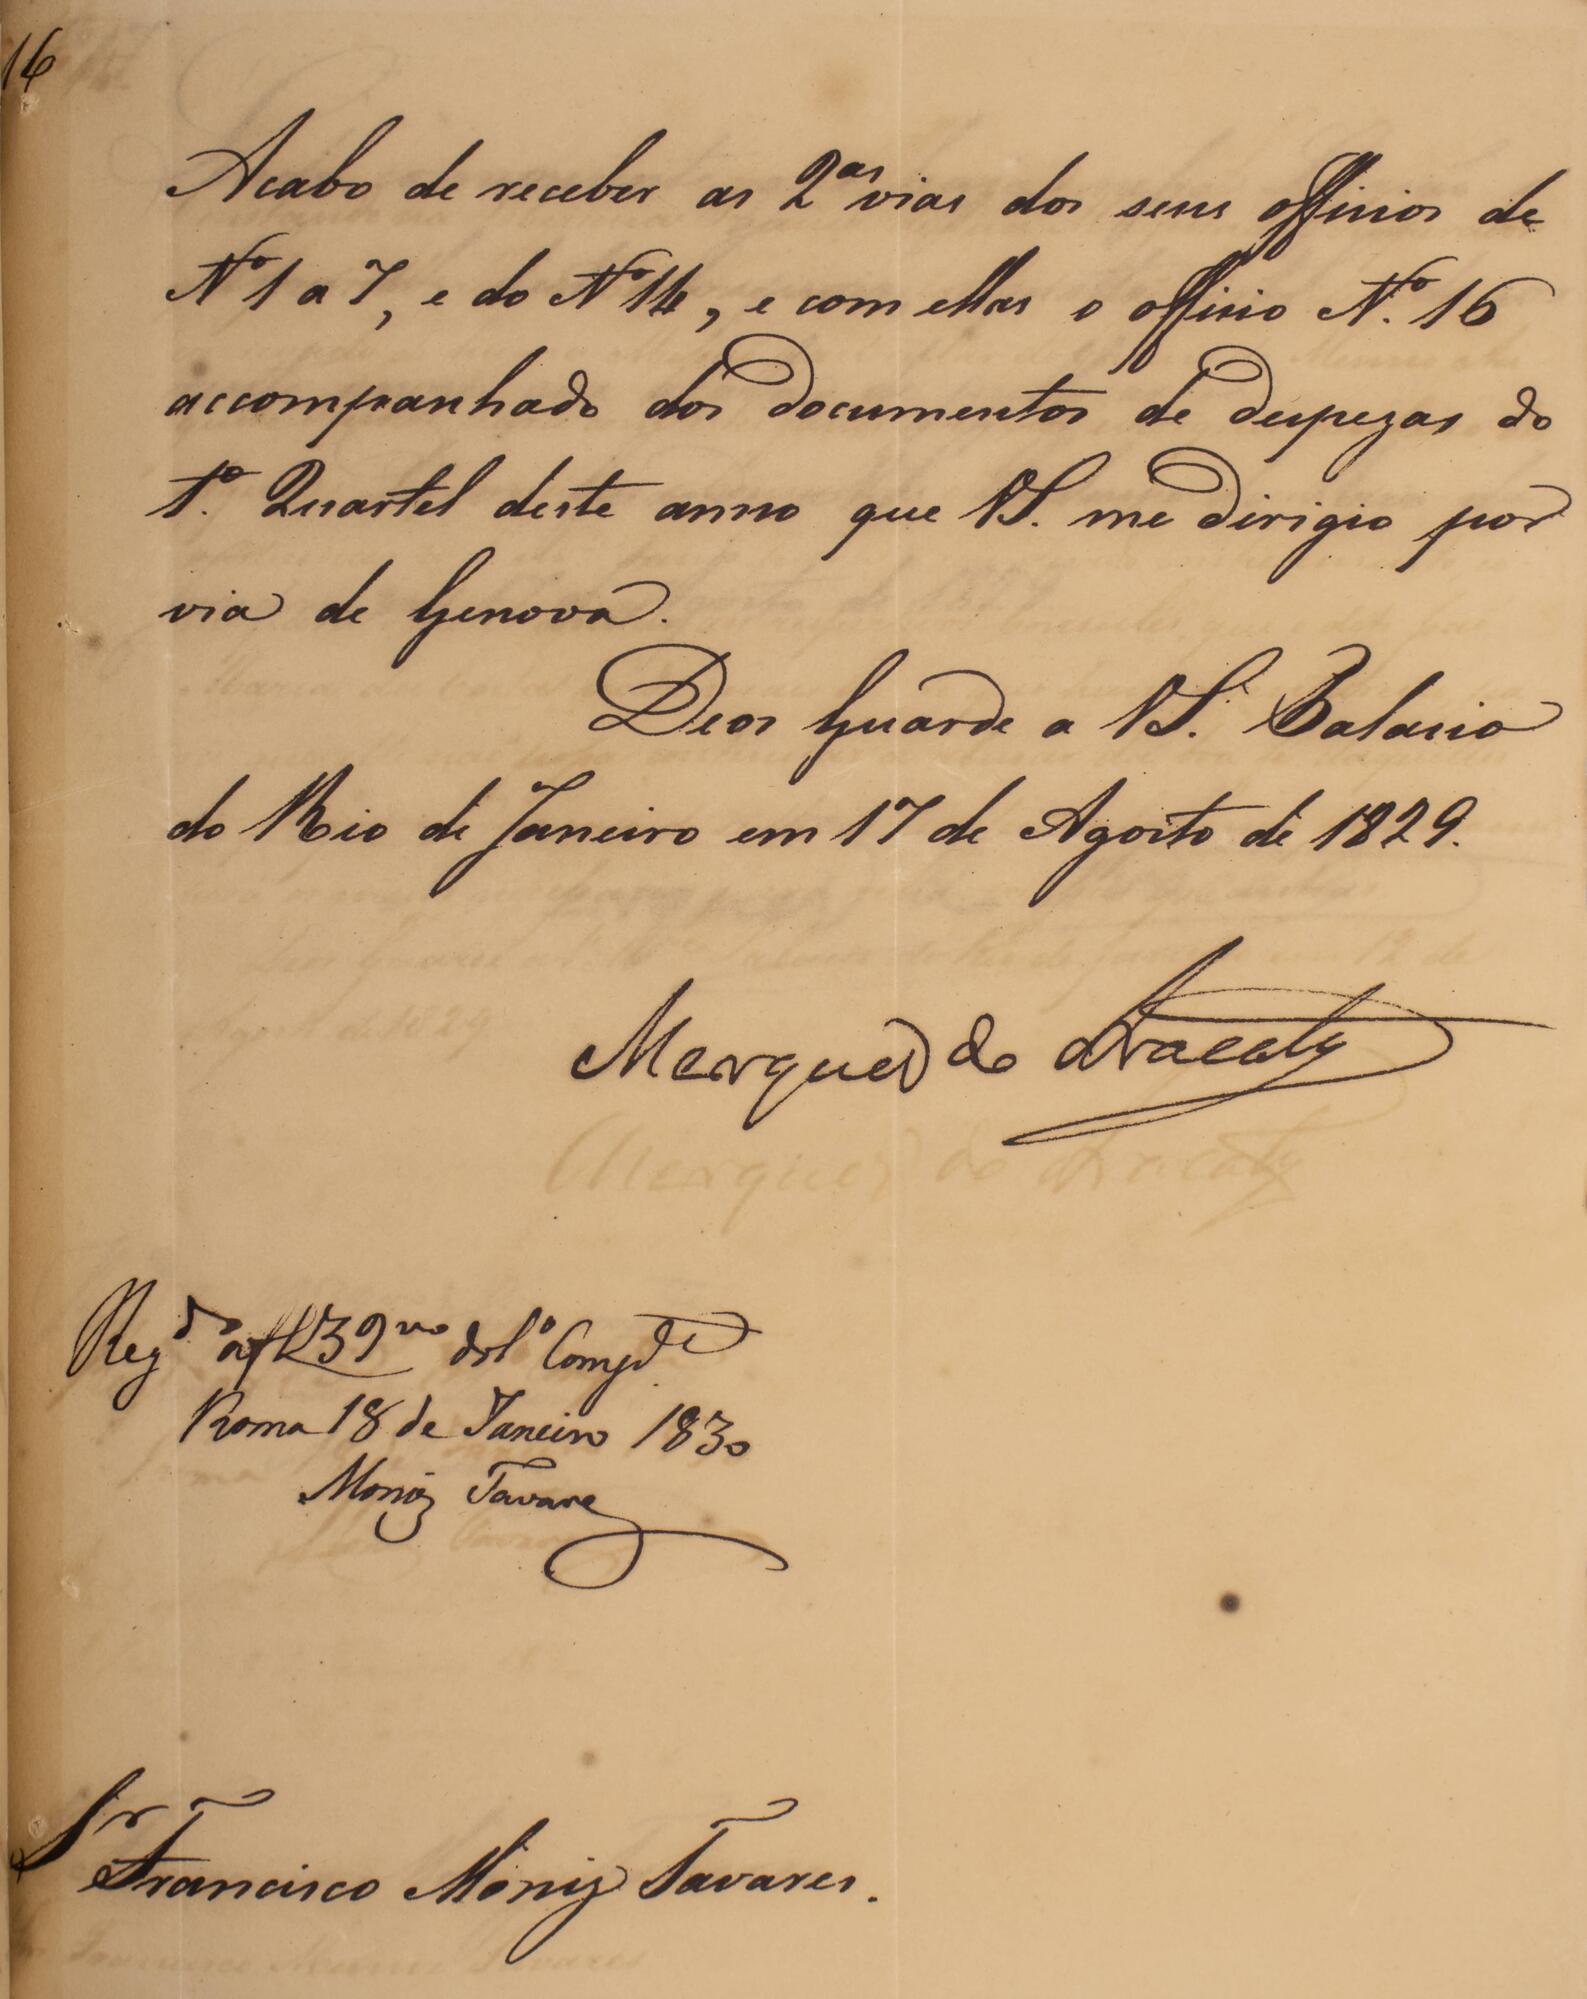 16
Acabo de receber as 2.as vias dos seus officios de
Nº 1 a 7, e do Nº 14, e com ellas o officio Nº. 16
accompanhado dos documentos de despezas do
1º. Quartel deste anno que VS. me dirigio por
via de Genova.
Deos Guarde a VS. Palacio
do Rio de Janeiro em 17 de Agosto de 1829.
Marquez do Aracaty
Reg.do a f 39 vo do Lº Comp.te
Roma 18 de Janeiro 1830
Moniz Tavares
Sr Francisco Moniz Tavares.